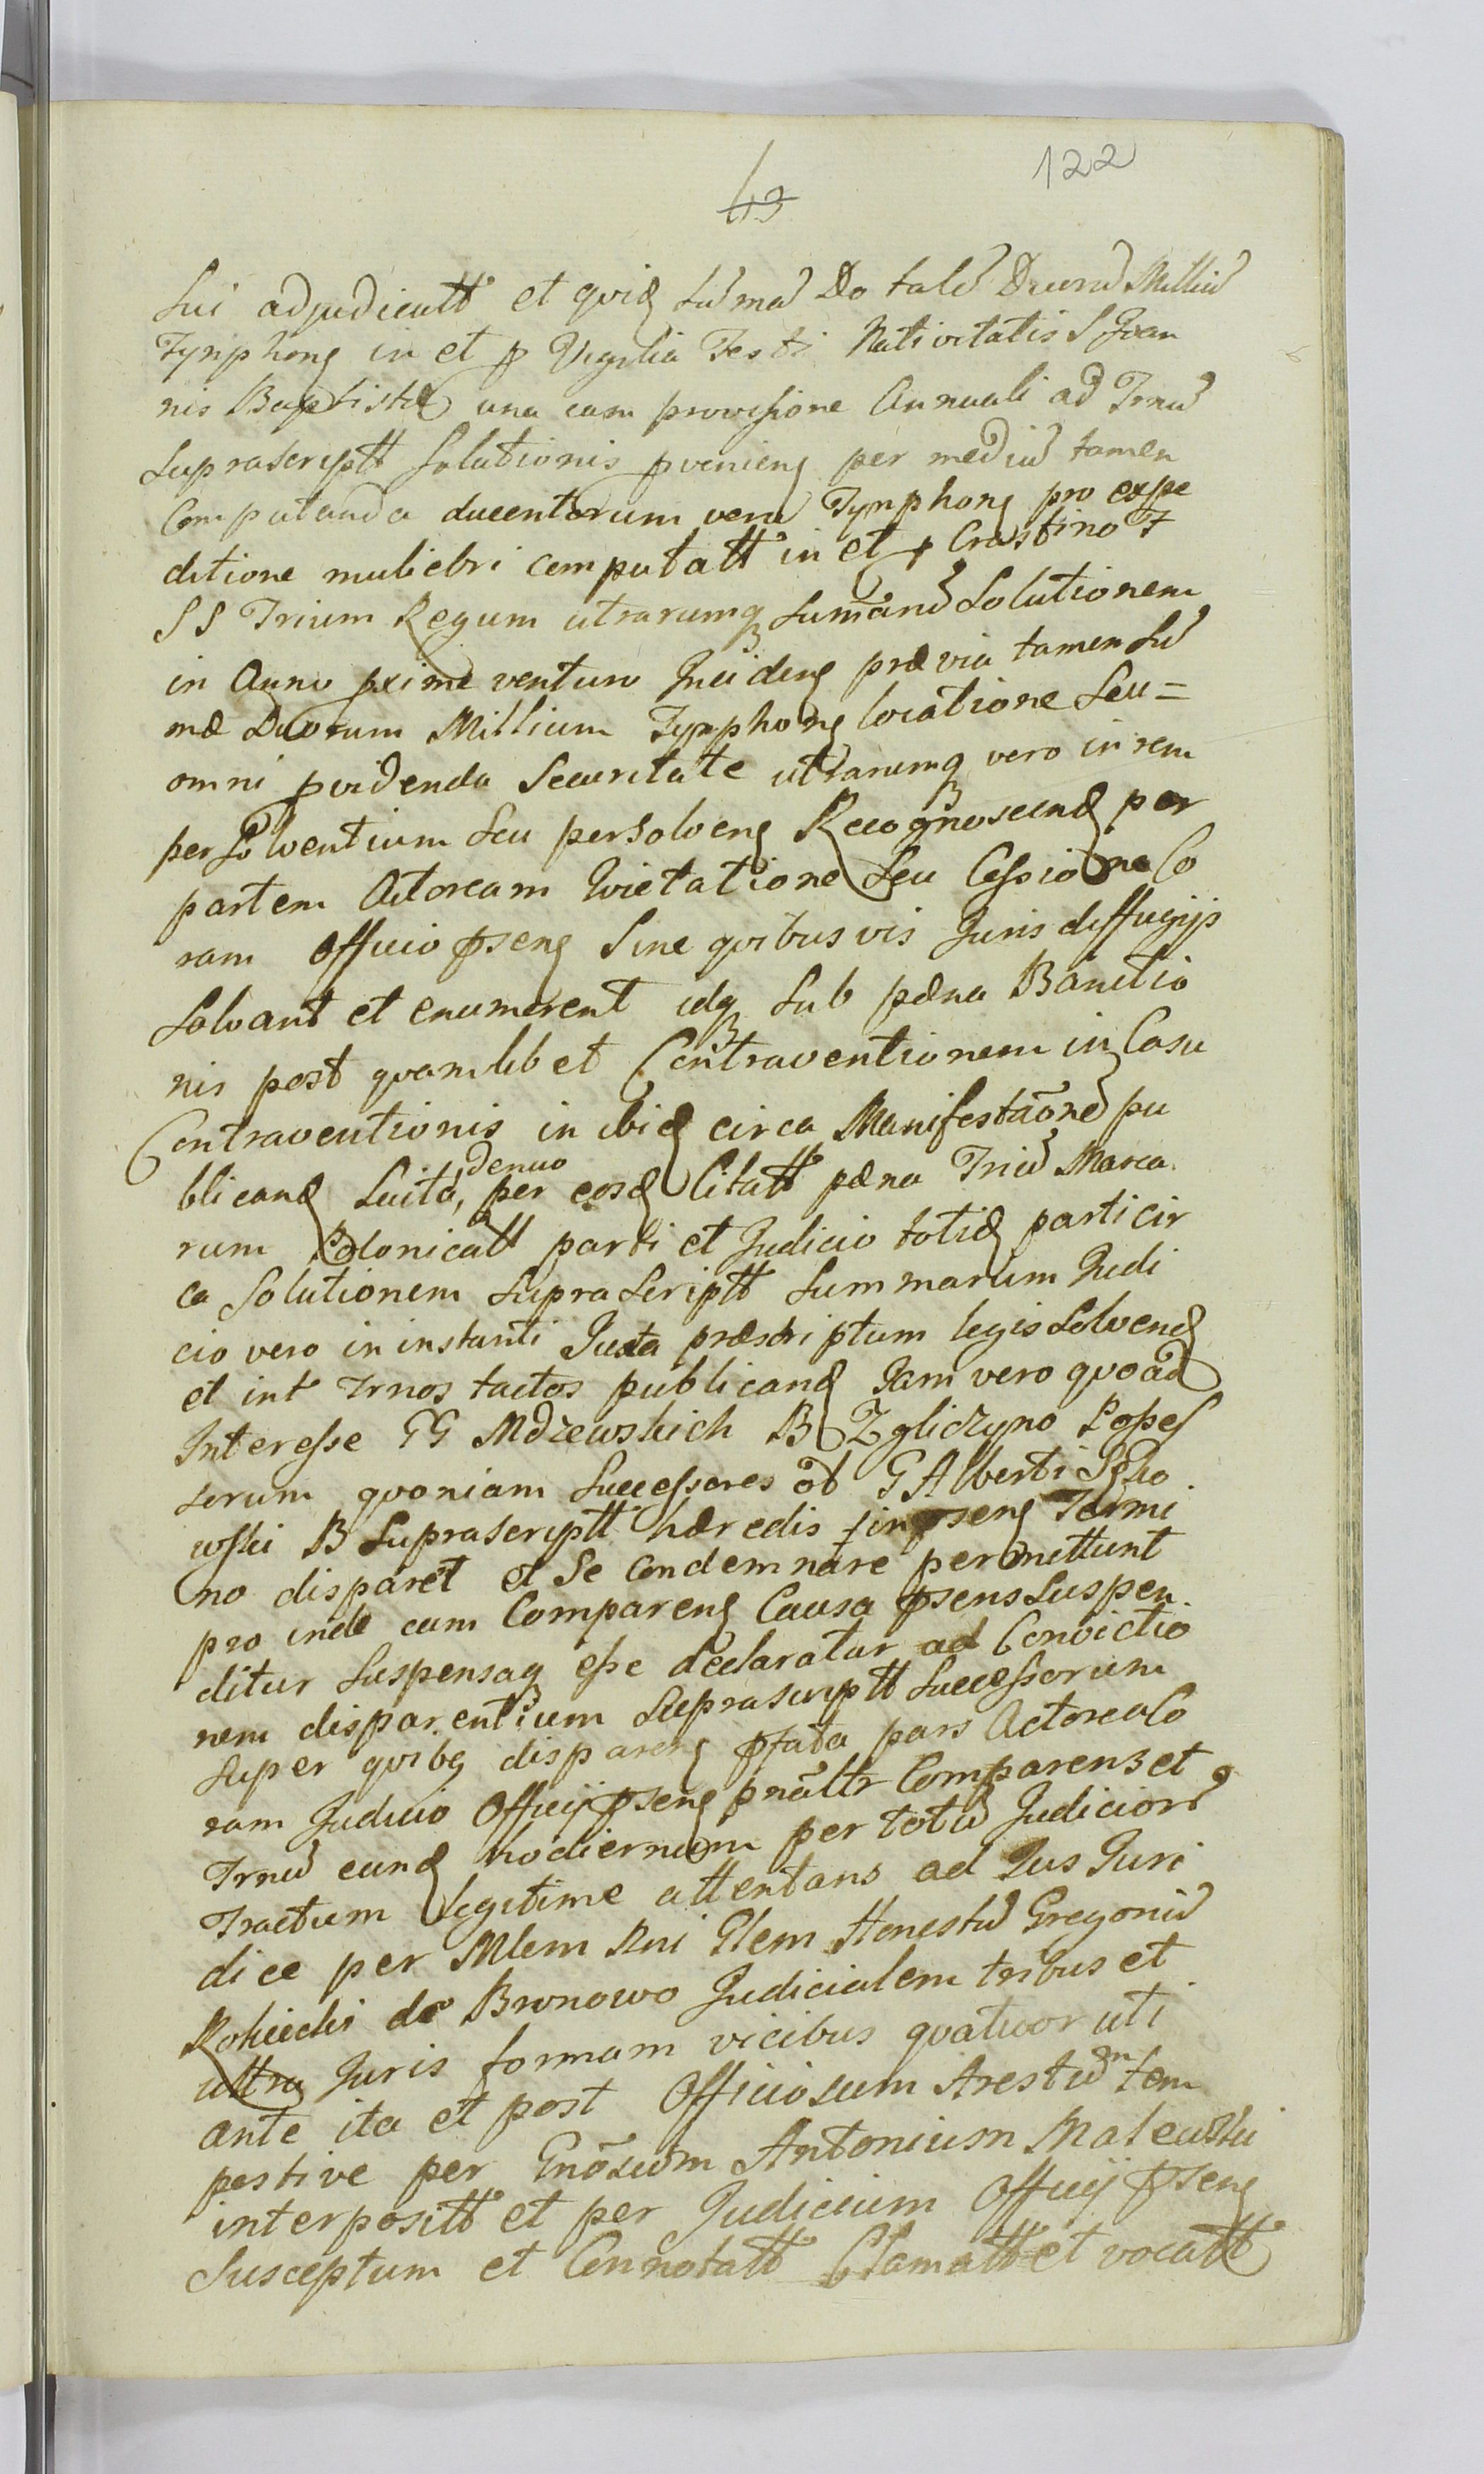 122
43
sui adjudicatt et quid summa Dotale Duorū Milliū
Tynphong in et p Vigilia Festi Nativitatis S Joan
nis Baptistæ una cum provisione Annuali ad Trnū
suprascriptt solutionis pvenieng per mediū tamen
Computanda ducentorum vero Tynphong pro expe
ditione muliebri computatt in et p Crastino F
SS Trium Regum utrarumq sumarū Solutionem
in Anno pxime venturo Incideng prævia tamen Su
mæ Duorum Millium Tynphong locatione Seu=
omni pvidenda Securitate utrarumq vero in rem
persolventium Seu persolveng Recognoscend per
partem Actoream Qvietatione Seu Cessione Co
ram Officio pseng Sine qvibusvis Juris diffugijs
Solvant et enumerent idq Sub pæna Banitio
nis post qvamlibet Contraventionem in Casu
Contraventionis in ibid circa Manifestaōne pu
blicand Luita, denuo per eosd Citatt pæna Triū Marca
rum Polonicatt parti et Judicio totid parti cir
ca Solutionem supra Scriptt Summarum Judi
cio vero in instanti Juxta præscriptum legis Solvend
et int Trnos tactos publicand Jam vero qvoad
Interesse GG Mdzewskich B Zgliczyno Posses
sorum qvoniam Successores ol G Alberti
wski B Suprascriptt hæredis in pseng Termi
no disparet et Se Condemnare permittunt
pro inde cum Compareng Causa psens Suspen
ditur Suspensaq esse declaratur ad Convictio
nem disparentium Suprascriptt Successorum
super qvibq dispareng pfata pars Actorea Co
ram Judicio Officij pseng pnāltr Comparens et
Trnū eund hodiernum per totū Judiciorū
Tractum legitime attentans ad Jus Juri
dice per Mlem Rni Glem Honestū Gregoriū
Rokicki de Bronowo Judicialem tribus et
ultra Juris formam vicibus qvatuor uti
ante ita et post Officiosum Arestū tem
pestive per Gnōsum Antonium Malewski
interpositt et per Judicium Officij pseng
Susceptum et Connotatt Clamatt et vocatt